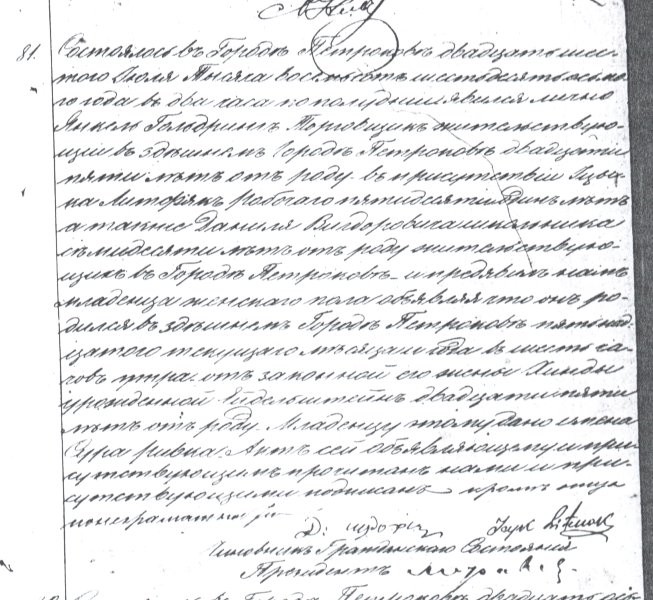 81. Состоялось въ Городѣ Петроковѣ двадцать шес-
того Июля Тысяча восемьсотъ шестьдесятъ осьма-
го года въ два часа по полудни явился лично
Янкель Гольдрингъ Торговщикъ жительствую-
щій въ здѣшнемъ Городѣ Петроковѣ двадцати
пяти лѣтъ отъ роду въ присутствіи Ицы-
ка робочаго пятидесяти Одинъ лѣтъ
а также Даниля Вигдоровича школьника
семидесяти лѣтъ отъ роду жительствую-
щихъ въ Городѣ Петроковѣ и предявилъ намъ
младенца женскаго пола объявляя что онъ ро-
дился въ здѣшнемъ Городѣ Петроковѣ пятьнад-
цатого текущаго мѣсяца и года въ шесть ча-
совъ утра отъ законной его жены Хинды
урожденной Эйдельштейнъ двадцати пяти
лѣтъ отъ роду. Младенцу этому дано имена
Сура ривка. Актъ сей объявляющему и при-
сутствующимъ прочитанъ нами и при-
сутствующими подписанъ кромѣ отца
Чиновникъ Гражданскаго Состоянія
Президентъ
въ Городѣ Петроковѣ двадцать